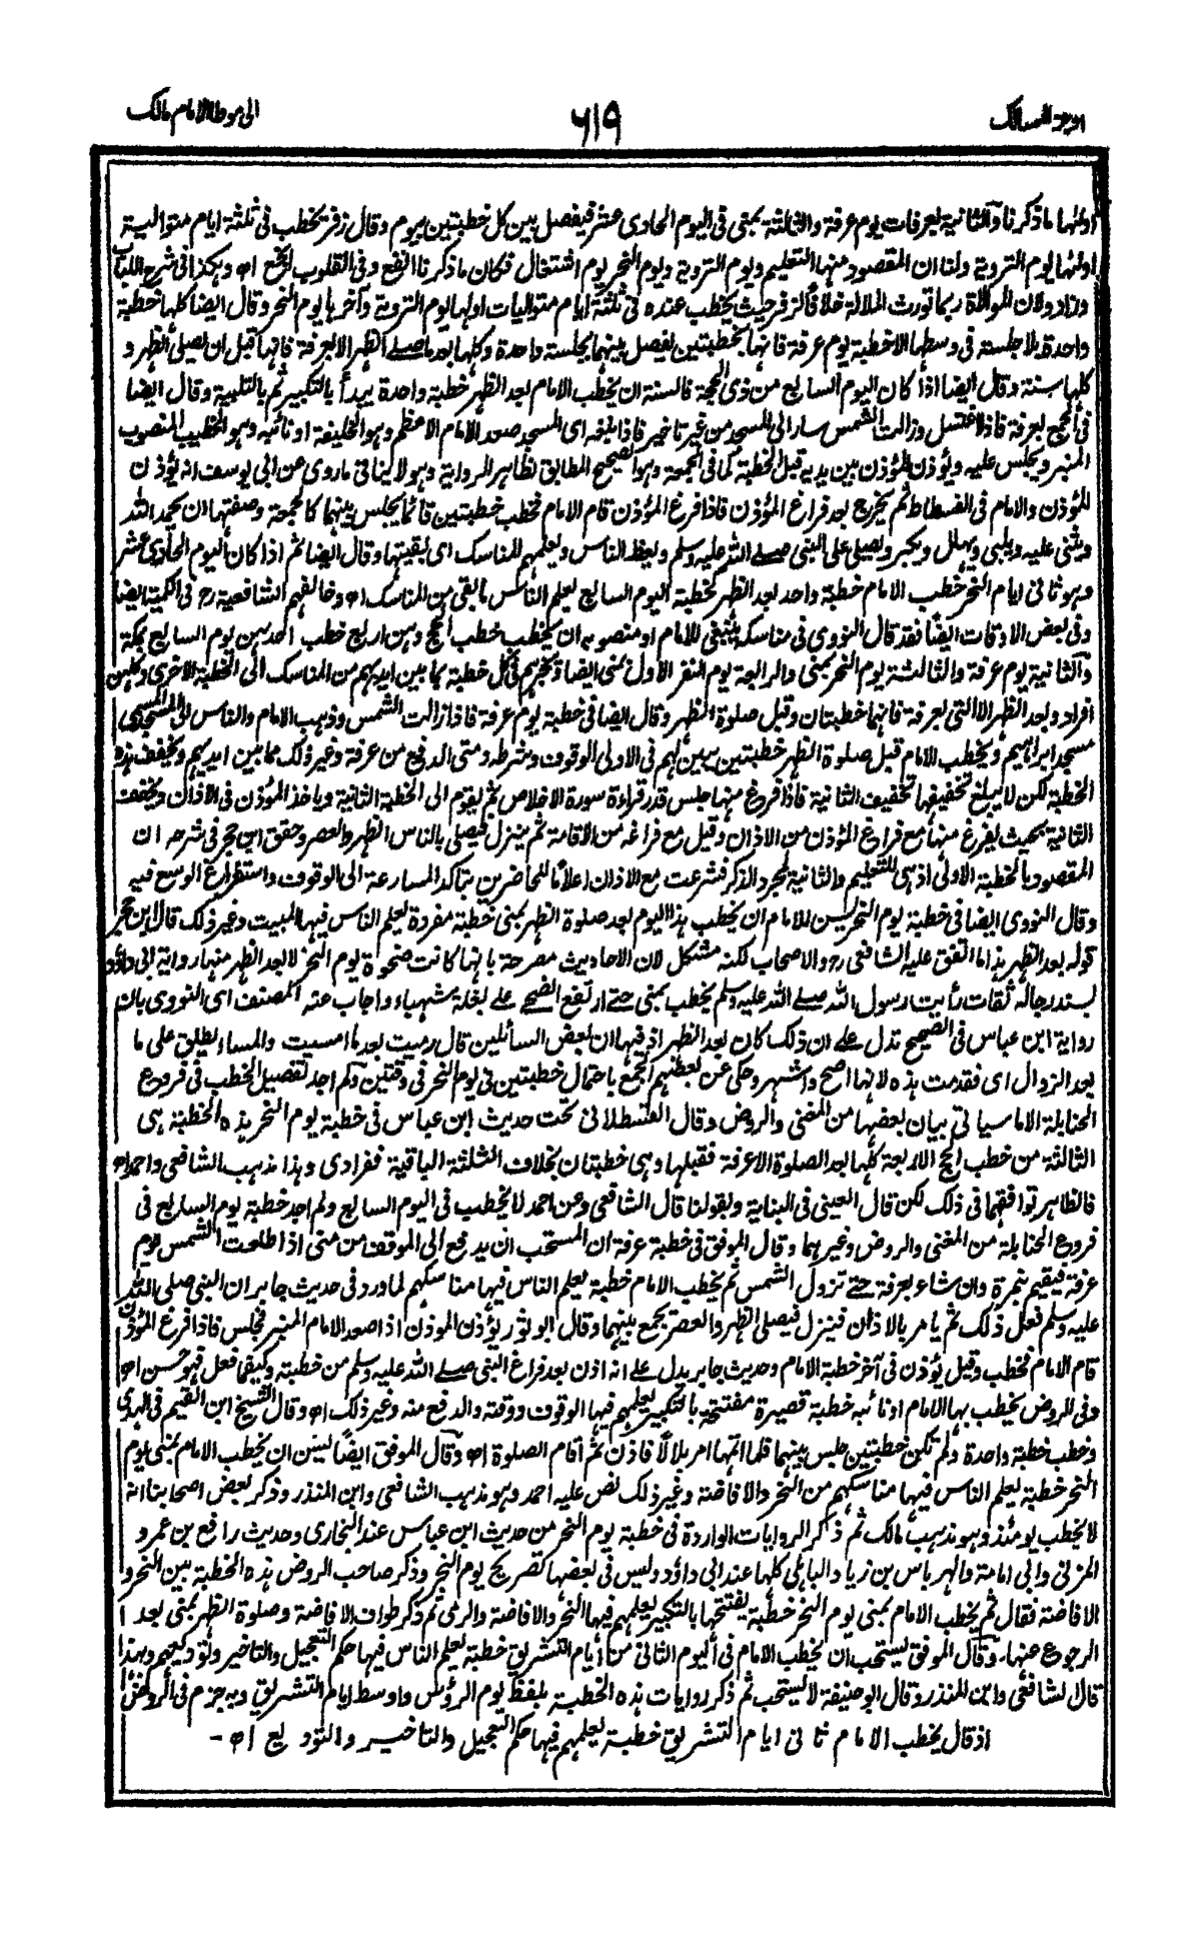 اوجز المسالک
٦١٩
الی موطا الامام مالک
اولها ما ذکرنا والثانیة بعرفات یوم عرفة والثالثة بمنی فی الیوم الحادی عشر فیفصل بین کل خطبتین بیوم وقال زفر یخطب فی ثلثة ایام متوالیة
اولها یوم الترویة ولنا ان المقصود منها التعلیم ویوم الترویة ویوم النحر یوم اشتغال فکان ما ذکرنا انفع وفی القلوب انجع اه وهکذا فی شرح اللباب
وزاد ولان الموالاة ربما تورث الملالة خلافا لزفر حیث یخطب عنده فی ثلثة ایام متوالیات اولها یوم الترویة وآخرها یوم النحر وقال ایضا کلها خطبة
واحدة بلا جلسة فی وسطها الا خطبة یوم عرفة فانها بخطبتین یفصل بینهما بجلسة واحدة وکلها بعد ما صلے الظهر الا بعرفة فانها قبل ان یصلی الظهر و
کلها سنة وقال ایضا اذا کان الیوم السابع من ذی الحجة فالسنة ان یخطب الامام بعد الظهر خطبة واحدة یبدأ بالتکبیر ثم بالتلبیة وقال ایضا
فی الجمع بعرفة فاذا اغتسل وزالت الشمس سار الی المسجد من غیر تاخیر فاذا بلغه ای المسجد صعد الامام الاعظم وهو الخلیفة او نائبه وهو الخطیب المنصوب
المنبر ویجلس علیه ویؤذن المؤذن بین یدیه قبل الخطبة کما فی الجمعة وهو الصحیح المطابق لظاهر الروایة وهو لا ینافی ما روی عن ابی یوسف انه یؤذن
المؤذن والامام فی الفسطاط ثم یخرج بعد فراغ المؤذن فاذا فرغ المؤذن قام الامام فخطب خطبتین قائما یجلس بینهما کالجمعة وصفتها ان یحمد الله
ویثنی علیه ویلبی ویهلل ویکبر ویصلی علی النبی صلے الله علیه وسلم ویعظ الناس ویعلمهم المناسک ای بقیتها وقال ایضا ثم اذا کان الیوم الحادی عشر
وهو ثانی ایام النحر خطب الامام خطبة واحد بعد الظهر کخطبة الیوم السابع یعلم الناس ما بقی من المناسک اه وخالفهم الشافعیة رح فی الکمیة ایضا
وفی بعض الاوقات ایضا فقد قال النووی فی مناسکه ینبغی للامام او منصوبه ان یخطب خطب الحج وهن اربع خطب احدهن یوم السابع بمکة
والثانیة یوم عرفة والثالثة یوم النحر بمنی والرابعة یوم النفر الاول بمنی ایضا ویخبرهم فی کل خطبة بما بین ایدیهم من المناسک الی الخطبة الاخری وکلهن
افراد وبعد الظهر الا التی بعرفة فانهما خطبتان وقبل صلوة الظهر وقال ایضا فی خطبة یوم عرفة فاذا زالت الشمس وذهب الامام والناس الی المسجد المسمی
مسجد ابراهیم ویخطب الامام قبل صلوة الظهر خطبتین یبین لهم فی الاولی الوقوف وشرطه ومتی الدفع من عرفة وغیر ذلک مما بین ایدیهم ویخفف هذه
الخطبة لکن لا یبلغ تخفیفها تخفیف الثانیة فاذا فرغ منها جلس قدر قراءة سورة الاخلاص ثم یقوم الی الخطبة الثانیة ویاخذ المؤذن فی الاذان ویخفف
الثانیة بحیث یفرغ منها مع فراغ المؤذن من الاذان وقیل مع فراغه من الاقامة ثم ینزل فیصلی بالناس الظهر والعصر وحقق ابن حجر فی شرحه ان
المقصود بالخطبة الاولی اذ هی للتعلیم والثانیة لمجرد الذکر فشرعت مع الاذان اعلاما للحاضرین بتاکد المسارعة الی الوقوف واستفراغ الوسع فیه
وقال النووی ایضا فی خطبة یوم النحر یسن للامام ان یخطب هذا الیوم بعد صلوة الظهر بمنی خطبة مفردة یعلم الناس فیها المبیت وغیر ذلک قال ابن حجر
قوله بعد الظهر هذا ما اتفق علیه الشافعی رح والاصحاب لکنه مشکل لان الاحادیث مصرحة بانها کانت ضحوة یوم النحر لا بعد الظهر منها روایة ابی داؤد
بسند رجاله ثقات رأیت رسول الله صلے الله علیه وسلم یخطب بمنی حتے ارتفع الضحے علے بغلة شهباء واجاب عنه المصنف ای النووی بان
روایة ابن عباس فی الصحیح تدل علے ان ذلک کان بعد الظهر اذ فیها ان بعض السائلین قال رمیت بعد ما امسیت والمساء یطلق علی ما
بعد الزوال ای فقدمت هذه لانها اصح واشهر وحکی عن بعضهم الجمع باحتمال خطبتین فی یوم النحر فی وقتین ولم اجد تفصیل الخطب فی فروع
الحنابلة الا ما سیاتی بیان بعضها من المغنی والروض وقال القسطلانی تحت حدیث ابن عباس فی خطبة یوم النحر هذه الخطبة هی
الثالثة من خطب الحج الاربعة کلها بعد الصلوة الا عرفة فقبلها وهی خطبتان بخلاف الثلثة الباقیة ففرادی وهذا مذهب الشافعی واحمد اه
فالظاهر توافقهما فی ذلک لکن قال العینی فی البنایة وبقولنا قال الشافعی وعن احمد لا یخطب فی الیوم السابع ولم اجد خطبة یوم السابع فی
فروع الحنابلة من المغنی والروض وغیرهما وقال الموفق فی خطبة عرفة ان المستحب ان یدفع الی الموقف من منی اذا طلعت الشمس یوم
عرفة فیقیم بنمرة وان شاء بعرفة حتے تزول الشمس ثم یخطب الامام خطبة یعلم الناس فیها مناسکهم لما ورد فی حدیث جابر ان النبی صلی الله
علیه وسلم فعل ذلک ثم یامر بالاذان فینزل فیصلی الظهر والعصر یجمع بینهما وقال ابو ثور یؤذن الموذن اذا صعد الامام المنبر فجلس فاذا فرغ المؤذن
قام الامام فخطب وقیل یؤذن فی آخر خطبة الامام وحدیث جابر یدل علے انه اذن بعد فراغ النبی صلے الله علیه وسلم من خطبته وکیفما فعل فهو حسن اه
وفی الروض یخطب بها الامام او نائبه خطبة قصیرة مفتتحة بالتکبیر یعلمهم فیها الوقوف ووقته والدفع منه وغیر ذلک اه وقال الشیخ ابن القیم فی الهدی
وخطب خطبة واحدة ولم تکن خطبتین جلس بینهما فلما اتمها امر بلالا فاذن ثم اقام الصلوة اه وقال الموفق ایضا یسن ان یخطب الامام بمنی یوم
النحر خطبة یعلم الناس فیها مناسکهم من النحر والافاضة وغیر ذلک نص علیه احمد وهو مذهب الشافعی وابن المنذر وذکر بعض اصحابنا انه
لا یخطب یومئذ وهو مذهب مالک ثم ذکر الروایات الواردة فی خطبة یوم النحر من حدیث ابن عباس عند البخاری وحدیث رافع بن عمرو
المزنی وابی امامة والهرماس بن زیاد الباهلی کلها عند ابی داؤد ولیس فی بعضها تصریح یوم النحر وذکر صاحب الروض هذه الخطبة بین النحر و
الافاضة فقال ثم یخطب الامام بمنی یوم النحر خطبة یفتتحها بالتکبیر یعلمهم فیها النحر والافاضة والرمی ثم ذکر طواف الافاضة وصلوة الظهر بمنی بعد
الرجوع عنها. وقال الموفق یستحب ان یخطب الامام فی الیوم الثانی من ایام التشریق خطبة یعلم الناس فیها حکم التعجیل والتاخیر وتودیعهم وبهذا
قال الشافعی وابن المنذر وقال ابو حنیفة لا یستحب ثم ذکر روایات هذه الخطبة بلفظ یوم الرؤس واوسط ایام التشریق وبه جزم فی الروض
اذ قال یخطب الامام ثانی ایام التشریق خطبة یعلمهم فیها حکم التعجیل والتاخیر والتودیع اه -